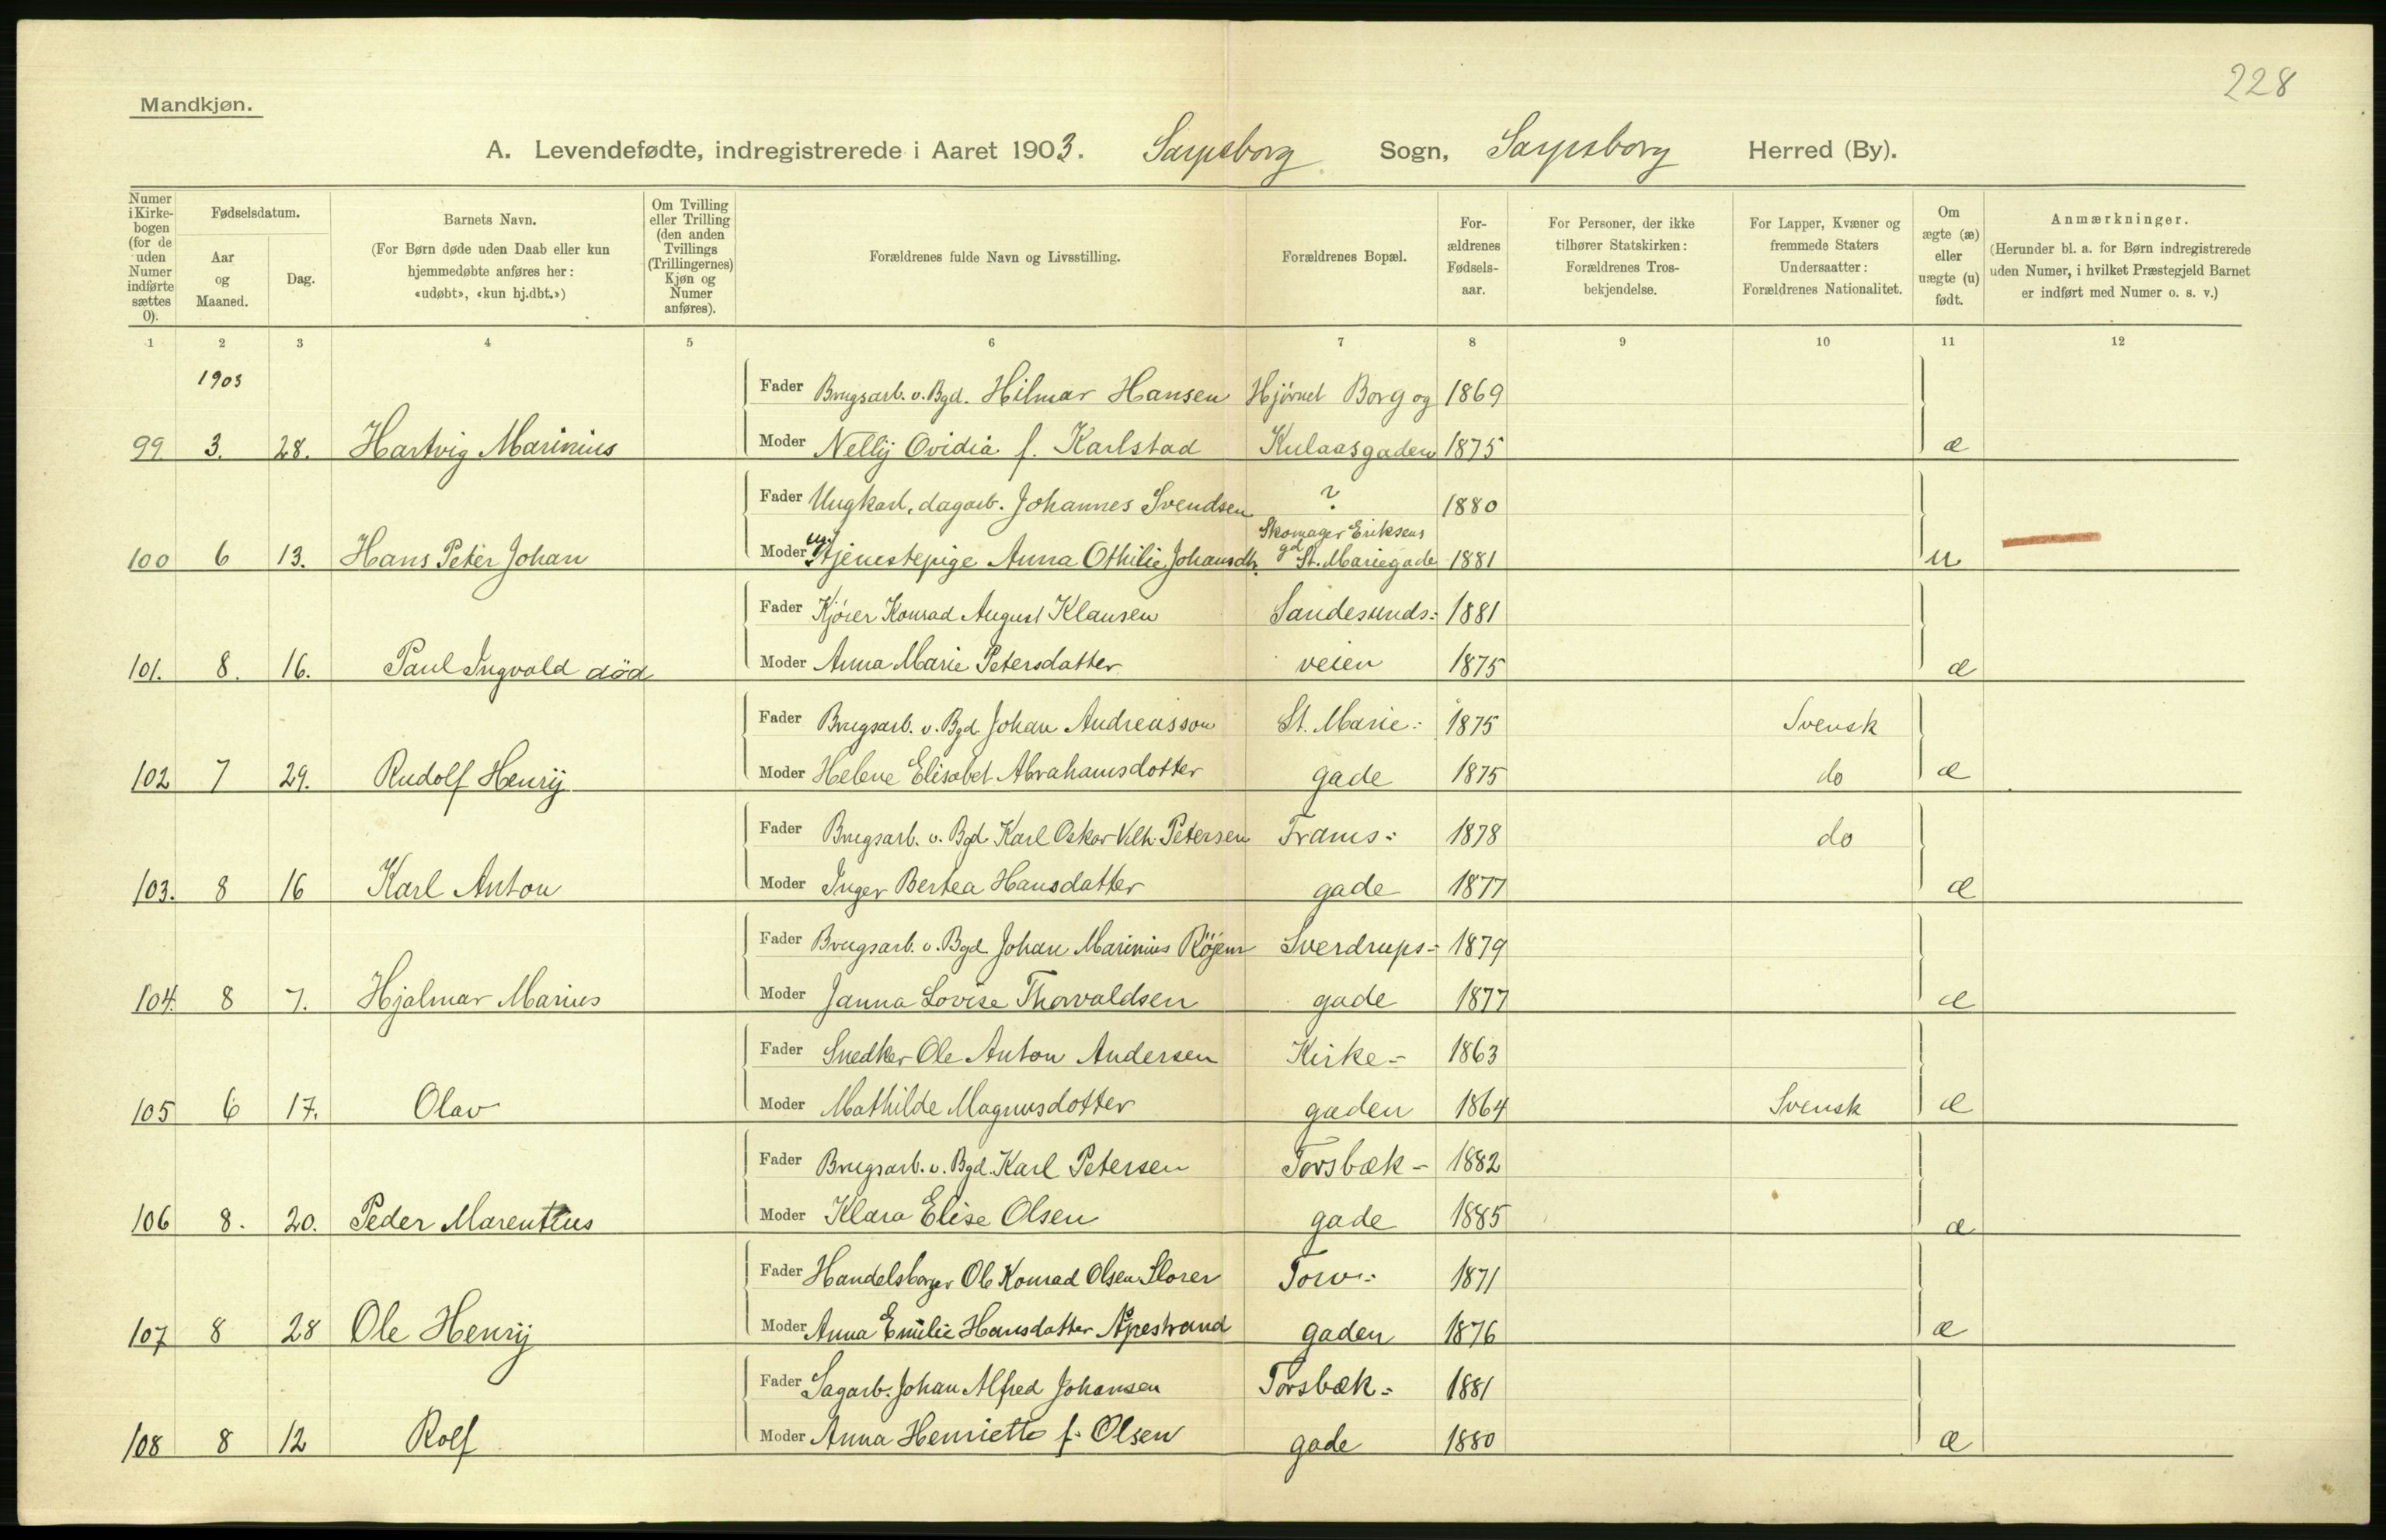 228
Mandkjøn.
A. Levendefødte, indregistrerede i Aaret 1903. Sarpsborg Sogn, Sarpsborg Herred (By).
Numer i Kirke-bogen (for de uden Numer indførte sættes 0).
Fødselsdatum.
Aar og Maaned.
Dag.
Barnets Navn.
(For Børn døde uden Daab eller kun hjemmedøbte anføres her: «udøbt», «kun hj.dbt.»)
Om Tvilling eller Trilling (den anden Tvillings (Trillingernes) Kjøn og Numer anføres).
Forældrenes fulde Navn og Livsstilling.
Forældrenes Bopæl.
For-ældrenes Fødsels-aar.
For Personer, der ikke tilhører Statskirken: Forældrenes Tros-bekjendelse.
For Lapper, Kvæner og fremmede Staters Undersaatter: Forældrenes Nationalitet.
Om ægte (æ) eller uægte (u) født.
Anmærkninger.
(Herunder bl. a. for Børn indregistrerede uden Numer, i hvilket Præstegjeld Barnet er indført med Numer o. s. v.)
1 2 3 4 5 6 7 8 9 10 11 12
1903
Fader Brugsarb. v. Bgd. Hilmar Hansen Hjørnet Borg og 1869
99 3. 28. Hartvig Marinius Moder Nellÿ Ovidia f. Karlstad Kulaasgaden 1875 æ
Fader Ungkarl, dagarb. Johannes Svendsen ? 1880
Skomager Eriksens
100 6 13. Hans Peter Johan Moder ug. Tjenestepige Anna Othilie Johansdtr. gd St. Mariegade 1881 u
Fader Kjører Konrad August Klausen Sandesunds- 1881
101. 8. 16. Paul Ingvald död Moder Anna Marie Petersdatter veien 1875 æ
Fader Brugsarb. v. Bgd. Johan Andreasson St. Marie- 1875 Svensk
102 7 29. Rudolf Henrÿ Moder Helene Elisabet Abrahamsdotter gade 1875 do æ
Fader Brugsarb. v. Bgd. Karl Oskar Vilh. Petersen Frams- 1878 do
103. 8 16 Karl Anton Moder Inger Bertea Hansdatter gade 1877 æ
Fader Brugsarb. v. Bgd. Johan Marinius Röjem Sverdrups- 1879
104. 8 7. Hjalmar Marius Moder Janna Lovise Thorvaldsen gade 1877 æ
Fader Snedker Ole Anton Andersen Kirke- 1863
105 6 17. Olav Moder Mathilde Magnusdotter gaden 1864 Svensk æ
Fader Brugsarb. v. Bgd. Karl Petersen Torsbæk- 1882
106 8. 20. Peder Marentius Moder Klara Elise Olsen gade 1885 æ
Fader Handelsborger Ole Konrad Olsen Storer Torv- 1871
107 8 28 Ole Henrÿ Moder Anna Emilie Hansdatter Apestrand gaden 1876 æ
Fader Sagarb. Johan Alfred Johansen Torsbæk- 1881
108 8 12 Rolf Moder Anna Henriette f. Olsen gade 1880 æ